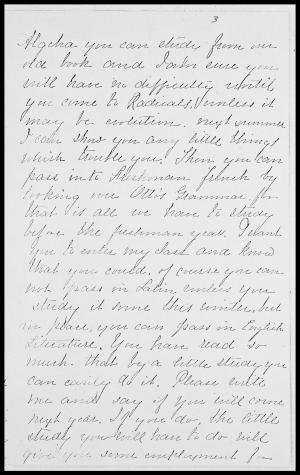 3
Algebra you can study from our
old book and I am sure you
will have no difficulty until
you come to Radicals, unless it
may be evolution. next summer
I can show you any little things
which trouble you. Then you can
pass into Freshman french by
looking over Ottis Grammar for
that is all we have to study
before the freshman year. I want
you to enter my class and know
that you could. of course you can
not pass in Latin unless you
study it some this winter, but
in place, you can pass in English
Literature. You have read so
much. that by a little study you
can easily do it. Please write
me and say if you will come
next year. If you do, the little
study you will have to do will
give you some employment for